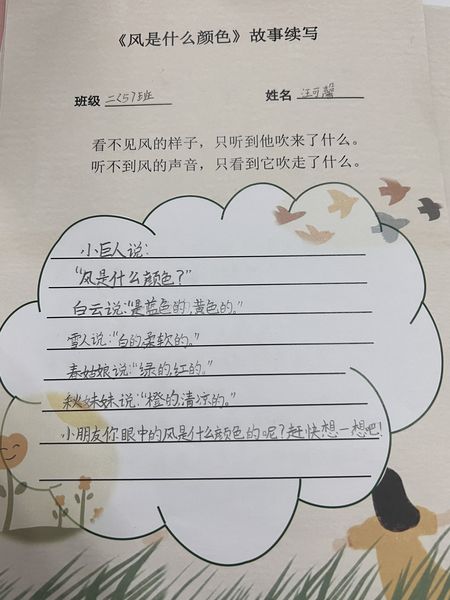 《风是什么颜色》故事续写
班级 二(5)班 姓名 汪可馨
看不见风的样子，只听到他吹来了什么。
听不到风的声音，只看到它吹走了什么。
小巨人说：
“风是什么颜色？”
白云说：“是蓝色的，黄色的。”
雪人说：“白的柔软的。”
春姑娘说：“绿的，红的。”
秋妹妹说：“橙的，清凉的。”
小朋友你眼中的风是什么颜色的呢？赶快想一想吧！